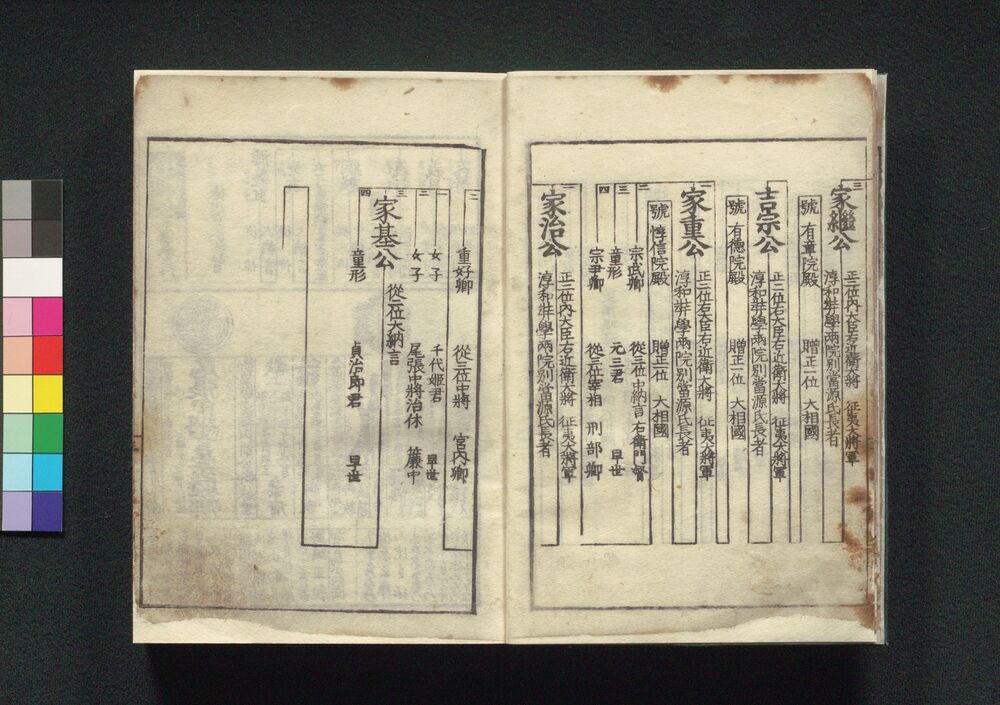 三
家繼公
正二位内大臣右近衛大將 征夷大將軍
淳和弉學兩院別當源氏長者
號 有章院殿 贈正一位 大相國
吉宗公
正二位右大臣右近衛大將 征夷大將軍
淳和弉學兩院別當源氏長者
號 有德院殿 贈正一位 大相國
一
家重公
正二位右大臣右近衛大將 征夷大將軍
淳和弉學兩院別當源氏長者
號 惇信院殿 贈正一位 大相國
二
宗武卿 從三位中納言右衛門督
三
童形 元三君 早世
四
宗尹卿 從三位宰相 刑部卿
一
家治公
正二位内大臣右近衛大將 征夷大將軍
淳和弉學兩院別當源氏長者
二
重好卿 從三位中將 宮内卿
一
女子 千代姬君 早世
二
女子 尾張中將治休 簾中
三
家基公
從二位大納言
四
童形 貞治郎君 早世